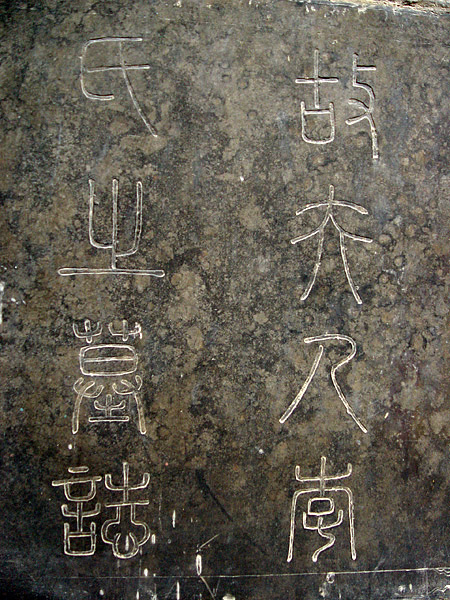 故夫人李
氏之墓誌